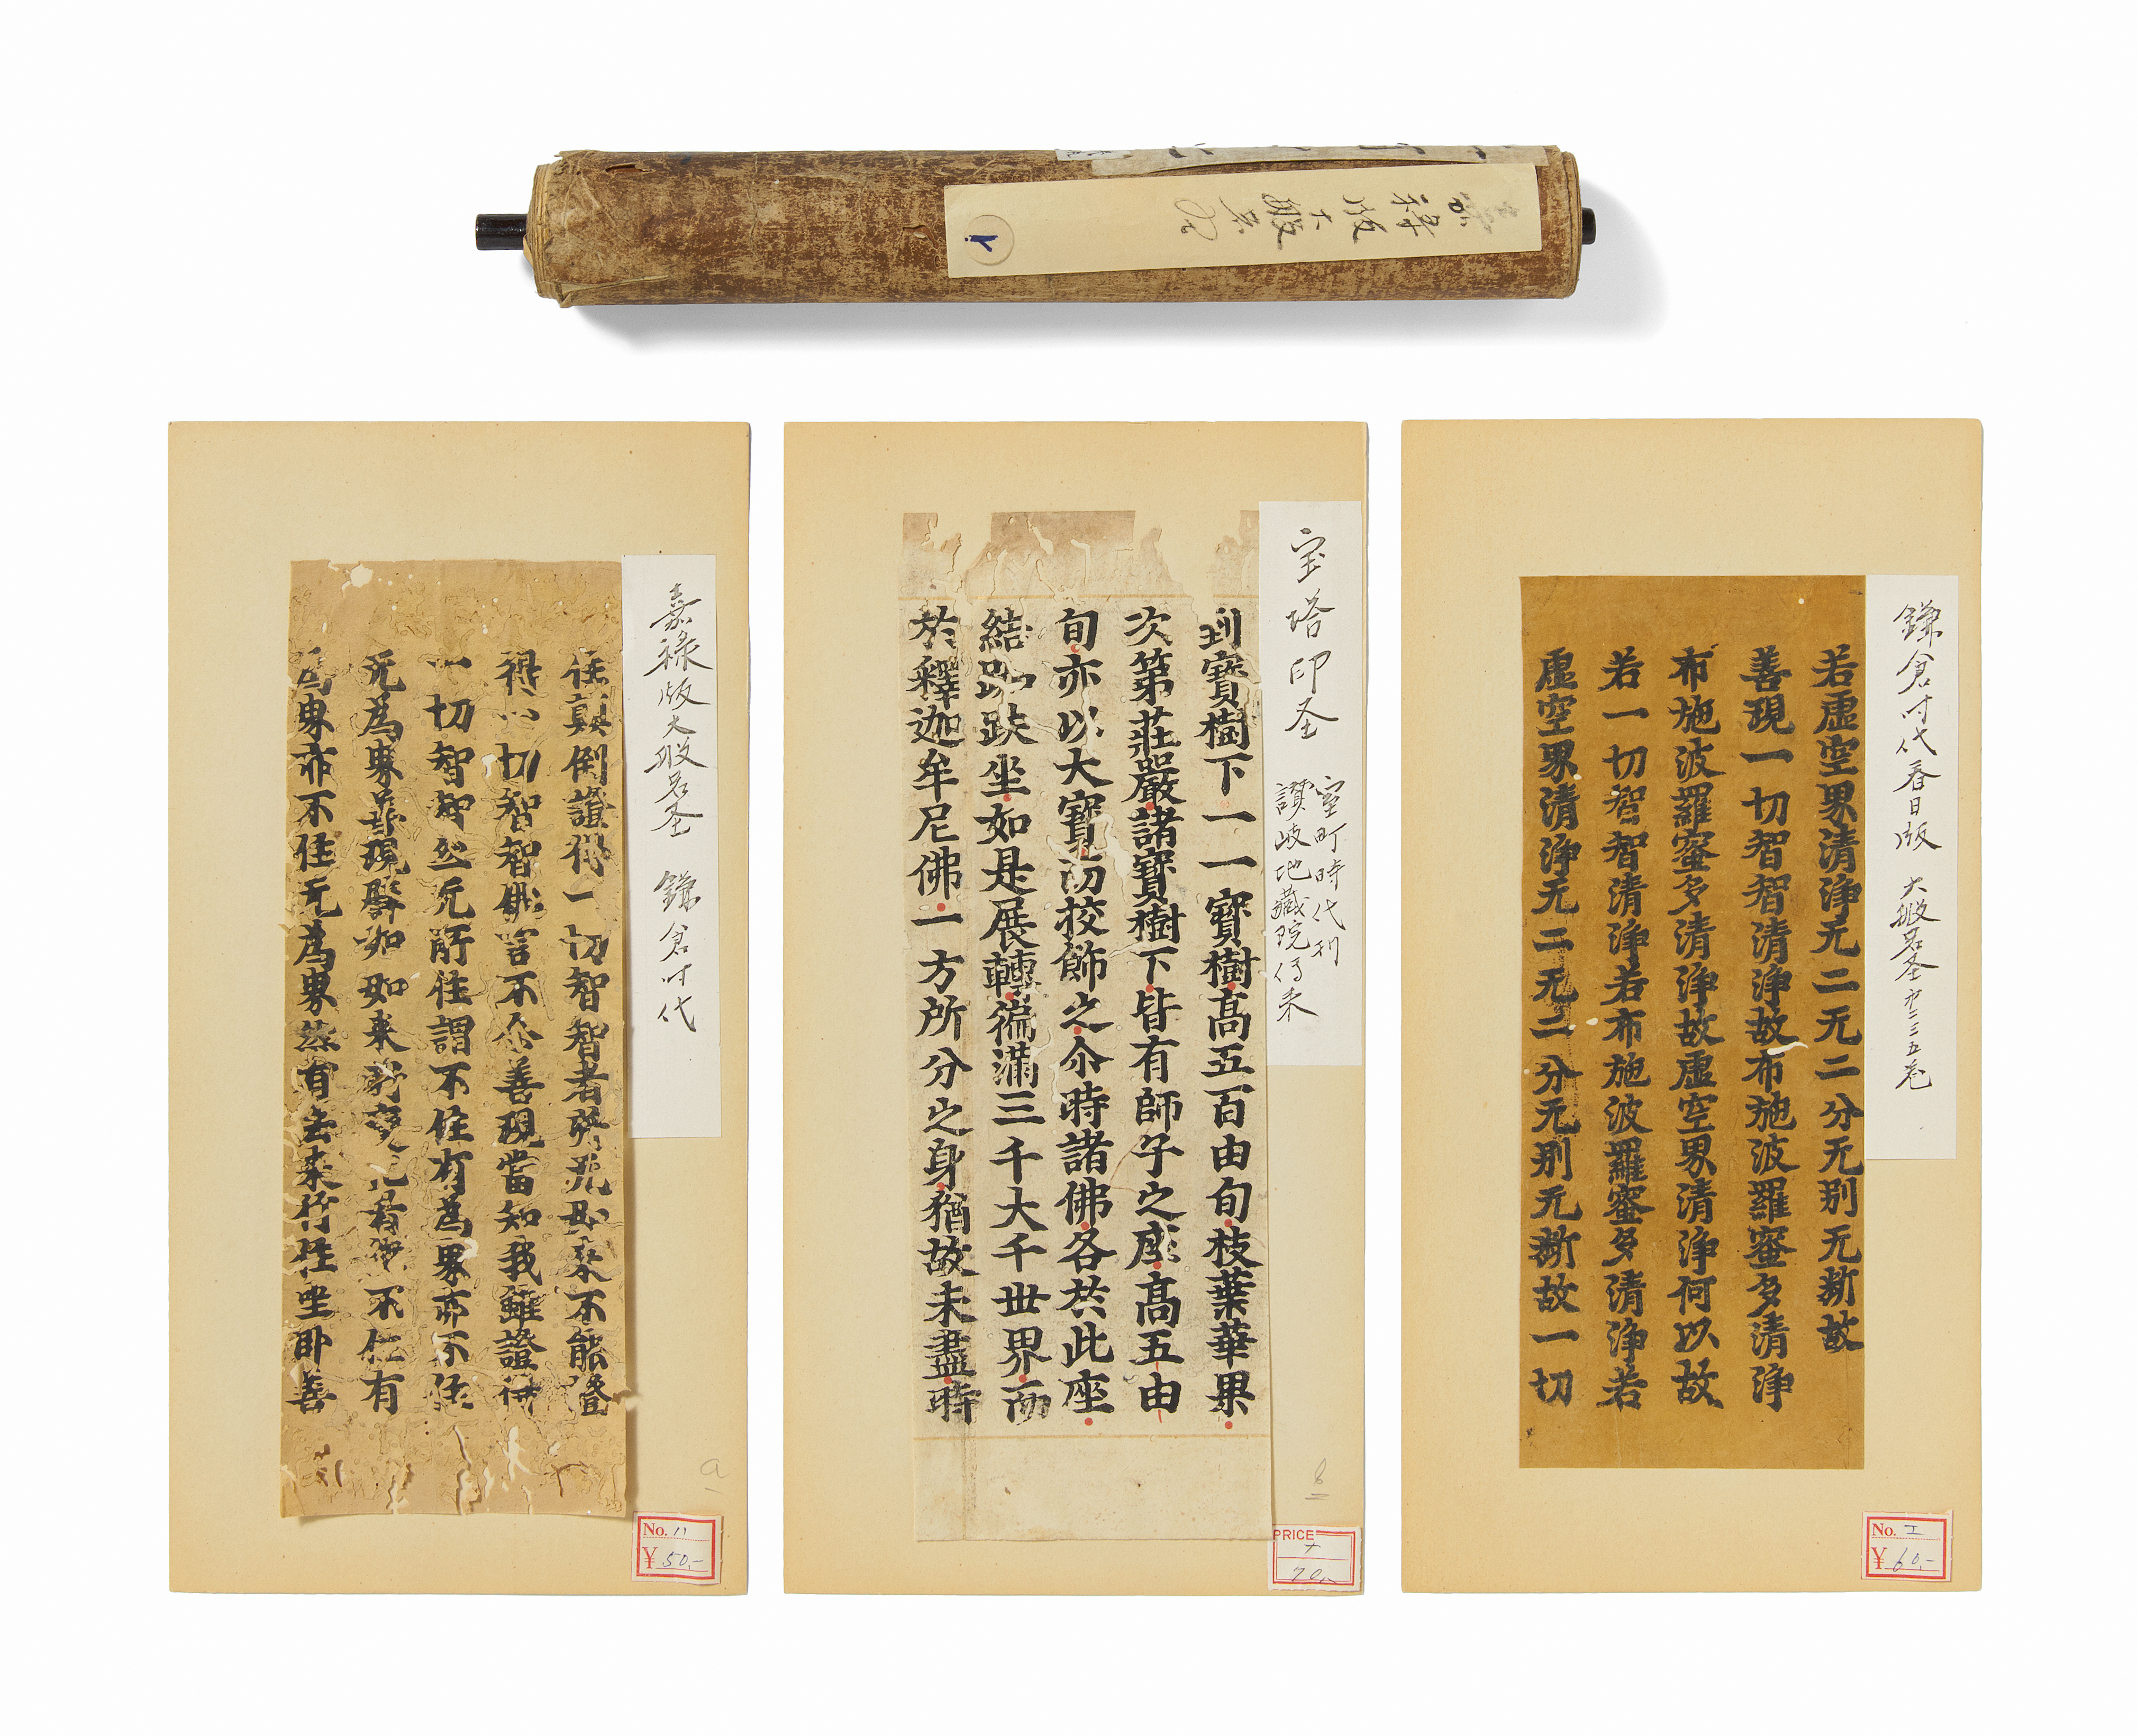 嘉禄版大般若圣
住真倒證得一切智智者能
得一切智智佛言不不也善現當知我雖證得
一切智智然无所住謂不住有為界亦不住
无為界善現譬如如來所變化者
為界亦不住无為界然有去來行住坐臥善
嘉禄版大般若圣 鎌倉时代
a
No. 11
¥ 50,-
到寶樹下一一寶樹高五百由旬枝葉華果
次第莊嚴諸寶樹下皆有師子之座高五由
旬亦以大寶而挍飾之尒時諸佛各於此座
結跏趺坐如是展轉遍滿三千大千世界而
於釋迦牟尼佛一方所分之身猶故未盡時
宝塔印圣
室町時代刊
讃岐地藏院伝来
PRICE
70,-
若虛空界清淨无二无二分无別无斷故
善現一切智智清淨故布施波羅蜜多清淨
布施波羅蜜多清淨故虛空界清淨何以故
若一切智智清淨若布施波羅蜜多清淨若
虛空界清淨无二无二分无別无斷故一切
鎌倉时代春日版 大般若圣 卆二三五卷
No. エ
¥ 60,-